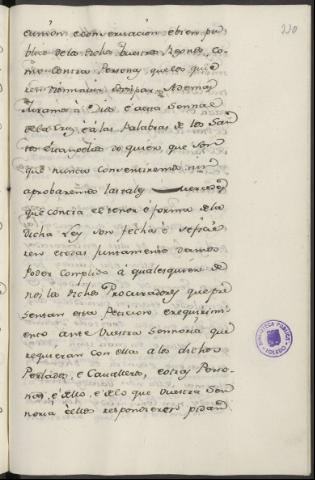 cunion e conservacion e bien pu
blico de los dichos vuestros Reynos, co
mo contra Persona, que los quie
ren disminuir e disipar. Ademas
Juramos à Dios, é à esta Sennal
de la Cruz, é à las Palabras de los San
tos Evangelios do quier, que son
que nunca consentiremos nin
aprobaremos las tales mercedes
que contra el tenor é forma de la
dicha Ley son fechas é se ficie
ren é todos juntamente damos
Poder complido à qualesquiera de
nos los dichos Procuradores que pre
sentan esta Peticion é requirimi
ento ante Vuestra Sennoria que
requieran con ella à los dichos
Perlados, e Cavalleros, è otras Perso
nas, é dello, é de lo que Vuestra Sen
noria é ellos respondieren pidan
220
BIBLIOTECA PUBLICA
TOLEDO